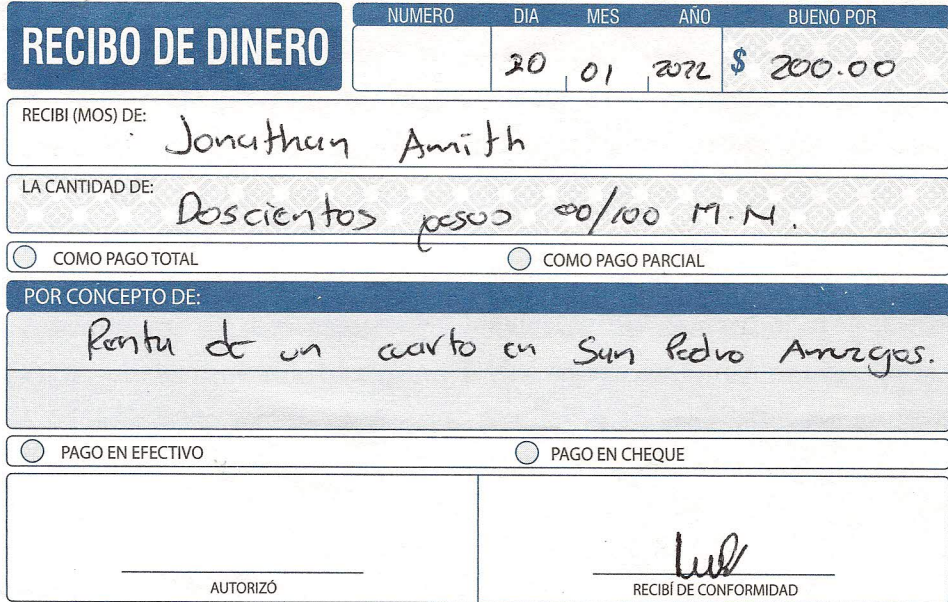 RECIBO DE DINERO
NUMERO DIA MES AÑO BUENO POR
20 01 2022 $ 200.00
RECIBI (MOS) DE: Jonathan Amith
LA CANTIDAD DE: Doscientos pesos 00/100 M.N.
COMO PAGO TOTAL COMO PAGO PARCIAL
POR CONCEPTO DE:
Renta de un cuarto en San Pedro Amuzgos.
PAGO EN EFECTIVO PAGO EN CHEQUE
AUTORIZÓ RECIBÍ DE CONFORMIDAD